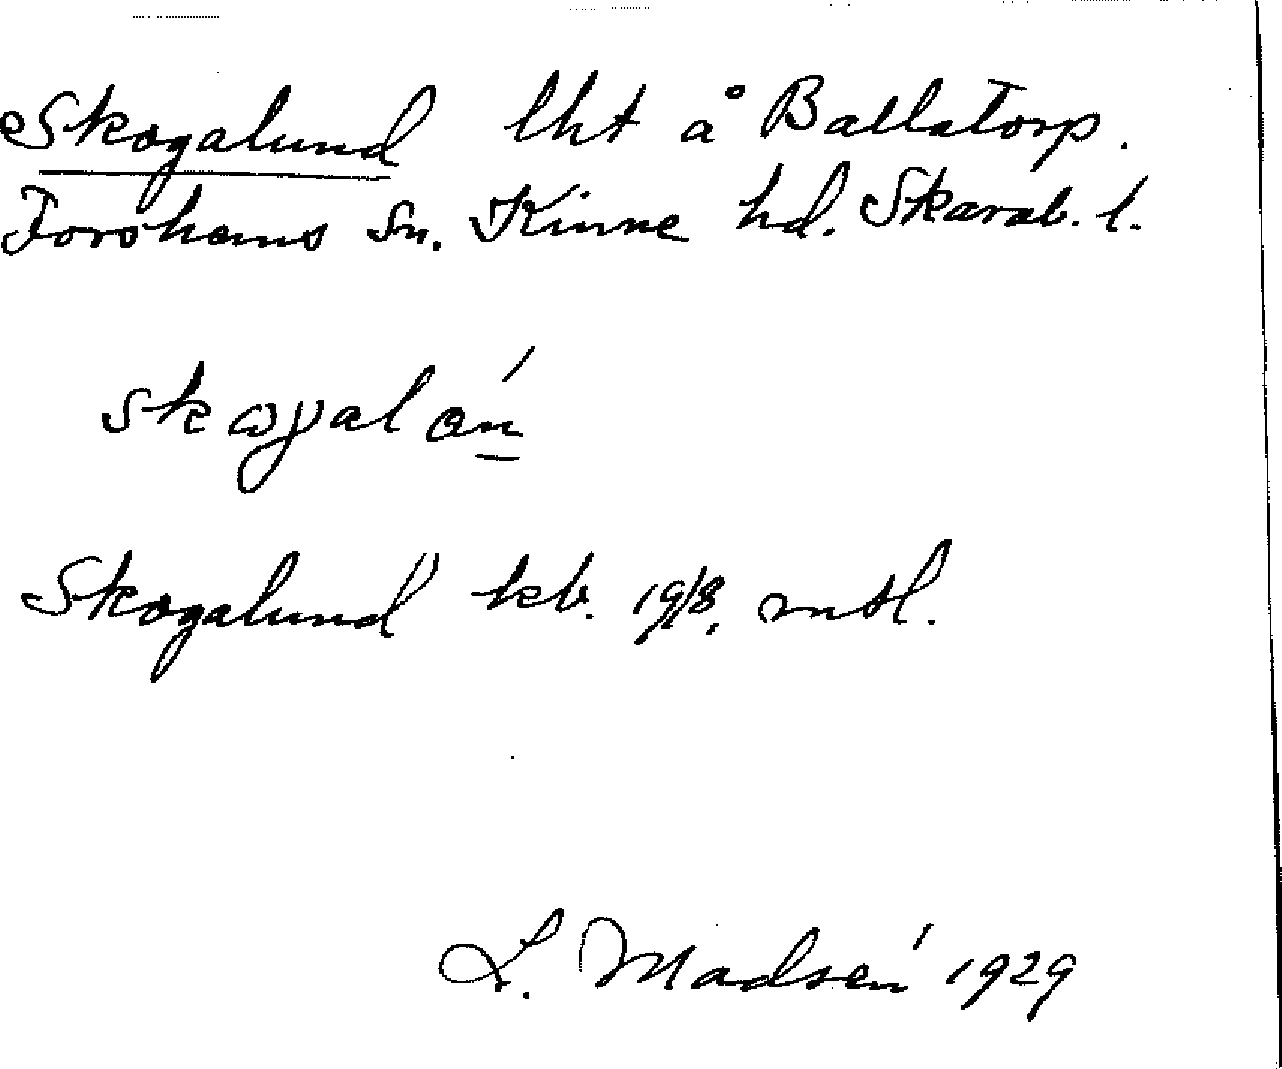 Skogalund lht å Ballatorp.
Forshems sn. Kinne hd. Skarab. l.
Skogalund kb. 19/8, mtl.
L. Madsén 1929